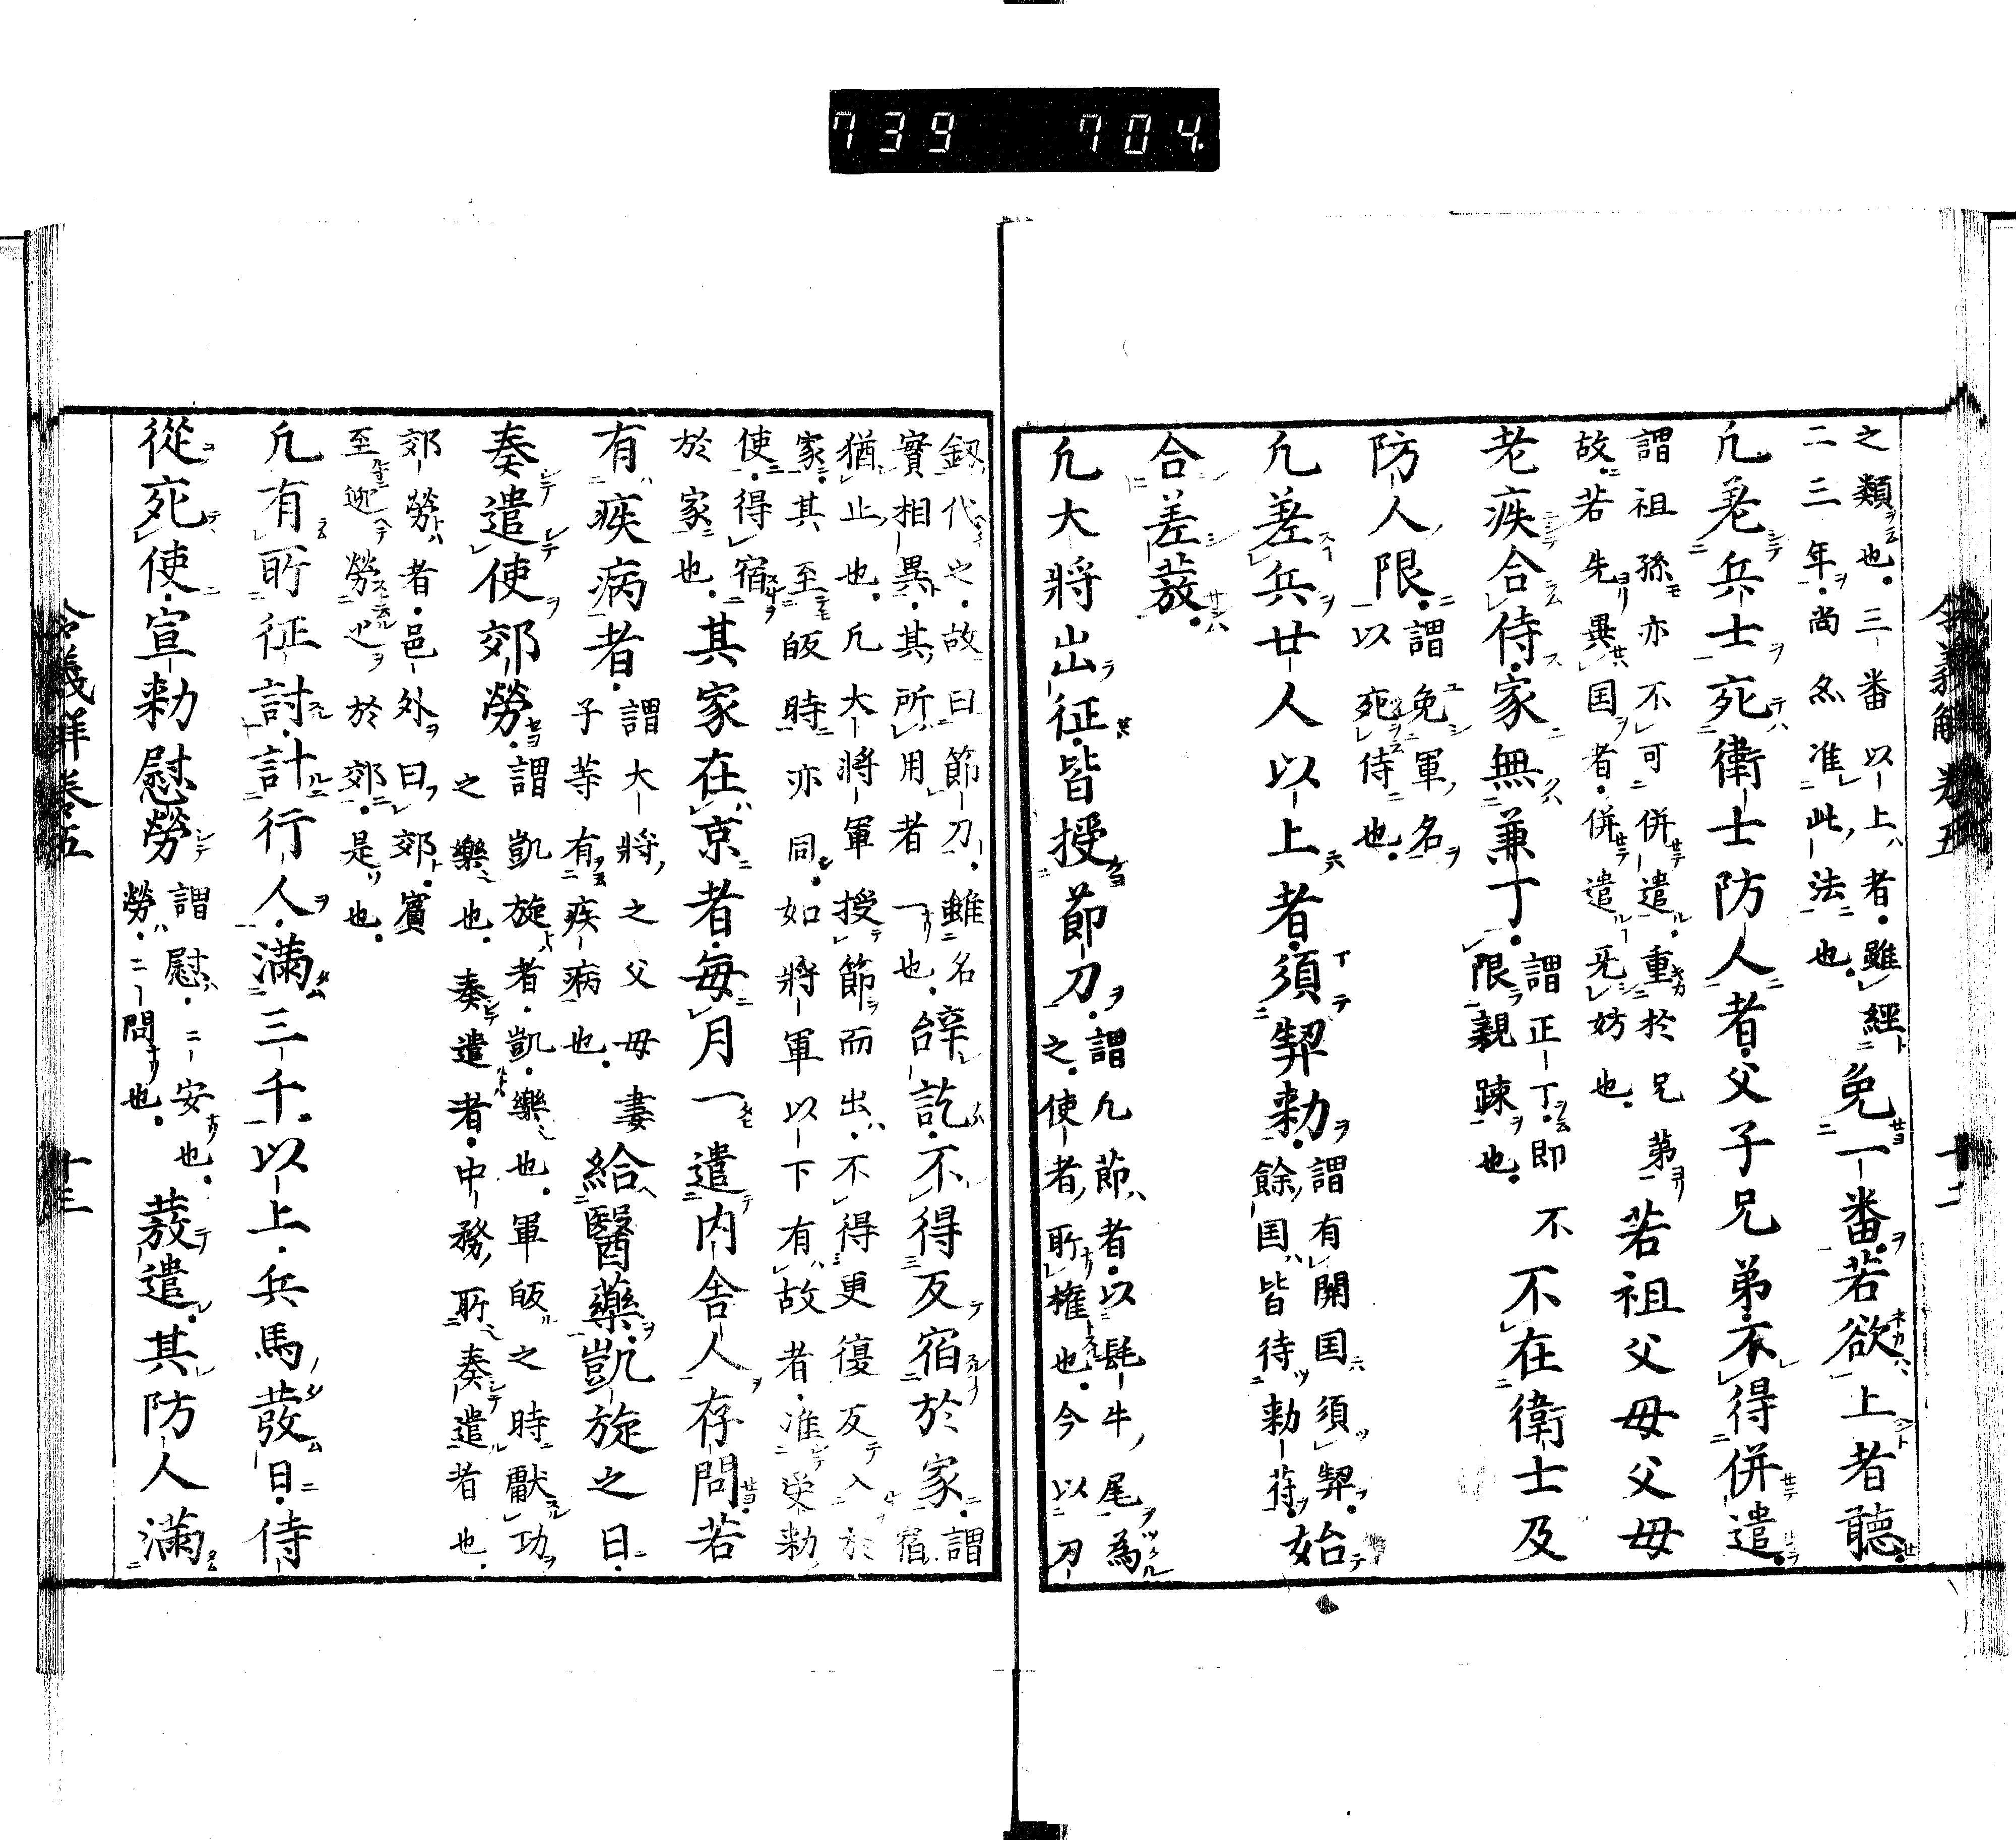 739 704
令義解卷五 十二
之類也。三番以上者。雖經免一番。若欲上者聽。
二三年。尚亦准此法也。
凢差兵士死衛士防人者。父子兄弟。不得併遣。
謂祖孫亦不可併遣。重於兄弟若祖父母父母
故。若先異国者。併遣无妨也。
老疾合侍。家無兼丁。謂正丁。即不不在衛士及
限親踈也。
防人限。謂免軍名。
以死侍也。
凢差兵廿人以上者。須契勅。謂有開国須契。始
餘国皆待勅符。
合差發。
凢大將出征。皆授節刀。謂凢節者。以髦牛尾為
之。使者所權也。今以刀
劔代之。故曰節刀。雖名辞訖。不得反宿於家。謂
實相異。其所用者一也。宿
猶止也。凢大將軍授節而出。不得更復反入於
家。其至皈時亦同。如將軍以下有故者。准受勅
使。得宿
於家也。其家在京者。每月一遣内舎人存問。若
有疾病者。謂大將之父母妻給醫藥。凱旋之日。
子等有疾病也。
奏遣使郊勞。謂凱旋者。凱樂也。軍皈之時獻功
之樂也。奏遣者。中務所奏遣者也。
郊勞者。邑外曰郊。賓
至迎勞之於郊。是也。
凢有所征討。計行人。滿三千以上。兵馬發日。侍
從死使。宣勅慰勞謂慰。安也。發遣。其防人滿
勞。問也。
令義解卷五 十三